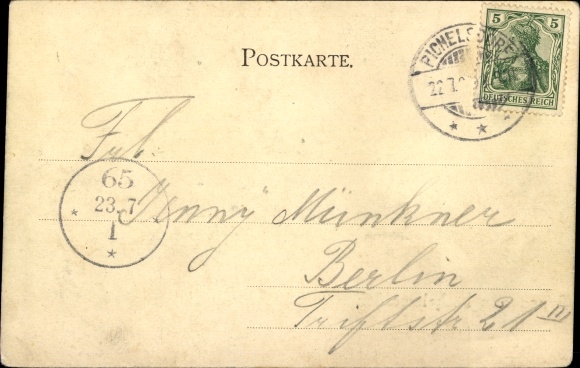 POSTKARTE.
PICHELSDORF
22.7.0
5 5
DEUTSCHES REICH
Frl.
65
23. 7
1
Jenny Münkner
Berlin
Triftstr 21 III